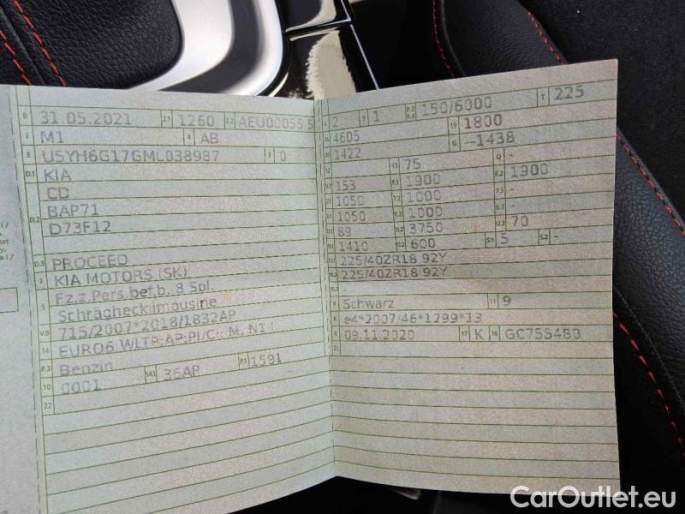 31.05.2021 1260
M1 AB
U5YH6G17GML038987 0
KIA
CD
BAP71
D73F12
PROCEED
KIA MOTORS (SK)
Fz.z.Pers.bef.b. 8 Spl.
Schräghecklimousine
715/2007*2018/1832AP
Benzin 1591
0001 36AP
22
2 1 150/6000 225
4605 1800
1422 --1438
75 -
153 1900 1900
1050 1000
1050 1000
89 3750 70
1410 600 5 -
225/40ZR18 92Y
225/40ZR18 92Y
-
Schwarz 9
e4*2007/46*1299*13
09.11.2020 K
CarOutlet.eu